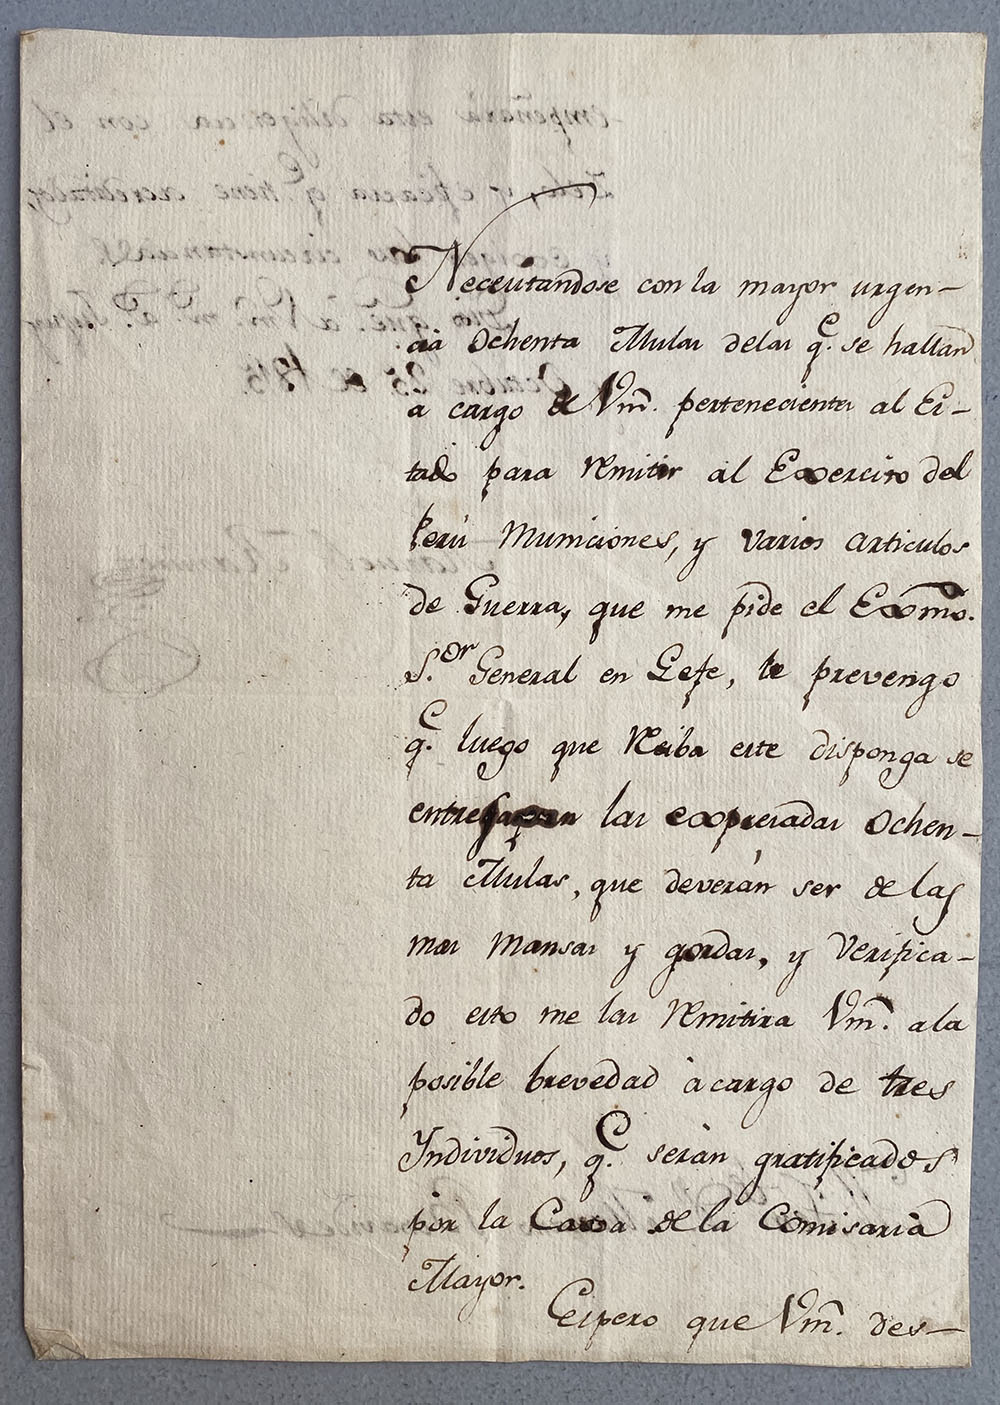 Necesitandose con la mayor urgen-
cia ochenta Mulas delas q.e se hallan
a cargo de Vm. pertenecientes al Es-
tado para remitir al Exercito del
Perú Municiones, y varios articulos
de Guerra, que me pide el Exmô.
S.or General en Gefe, le prevengo
q.e luego que reciba este disponga se
entreguen las expresadas ochen-
ta Mulas, que deverán ser de las
mas mansas y gordas, y verifica-
do esto me las remitira Vm. ala
posible brevedad à cargo de tres
Yndividuos, q.e serán gratificados
por la Caxa de la Comisaria
Mayor.
Espero que Vm. des-